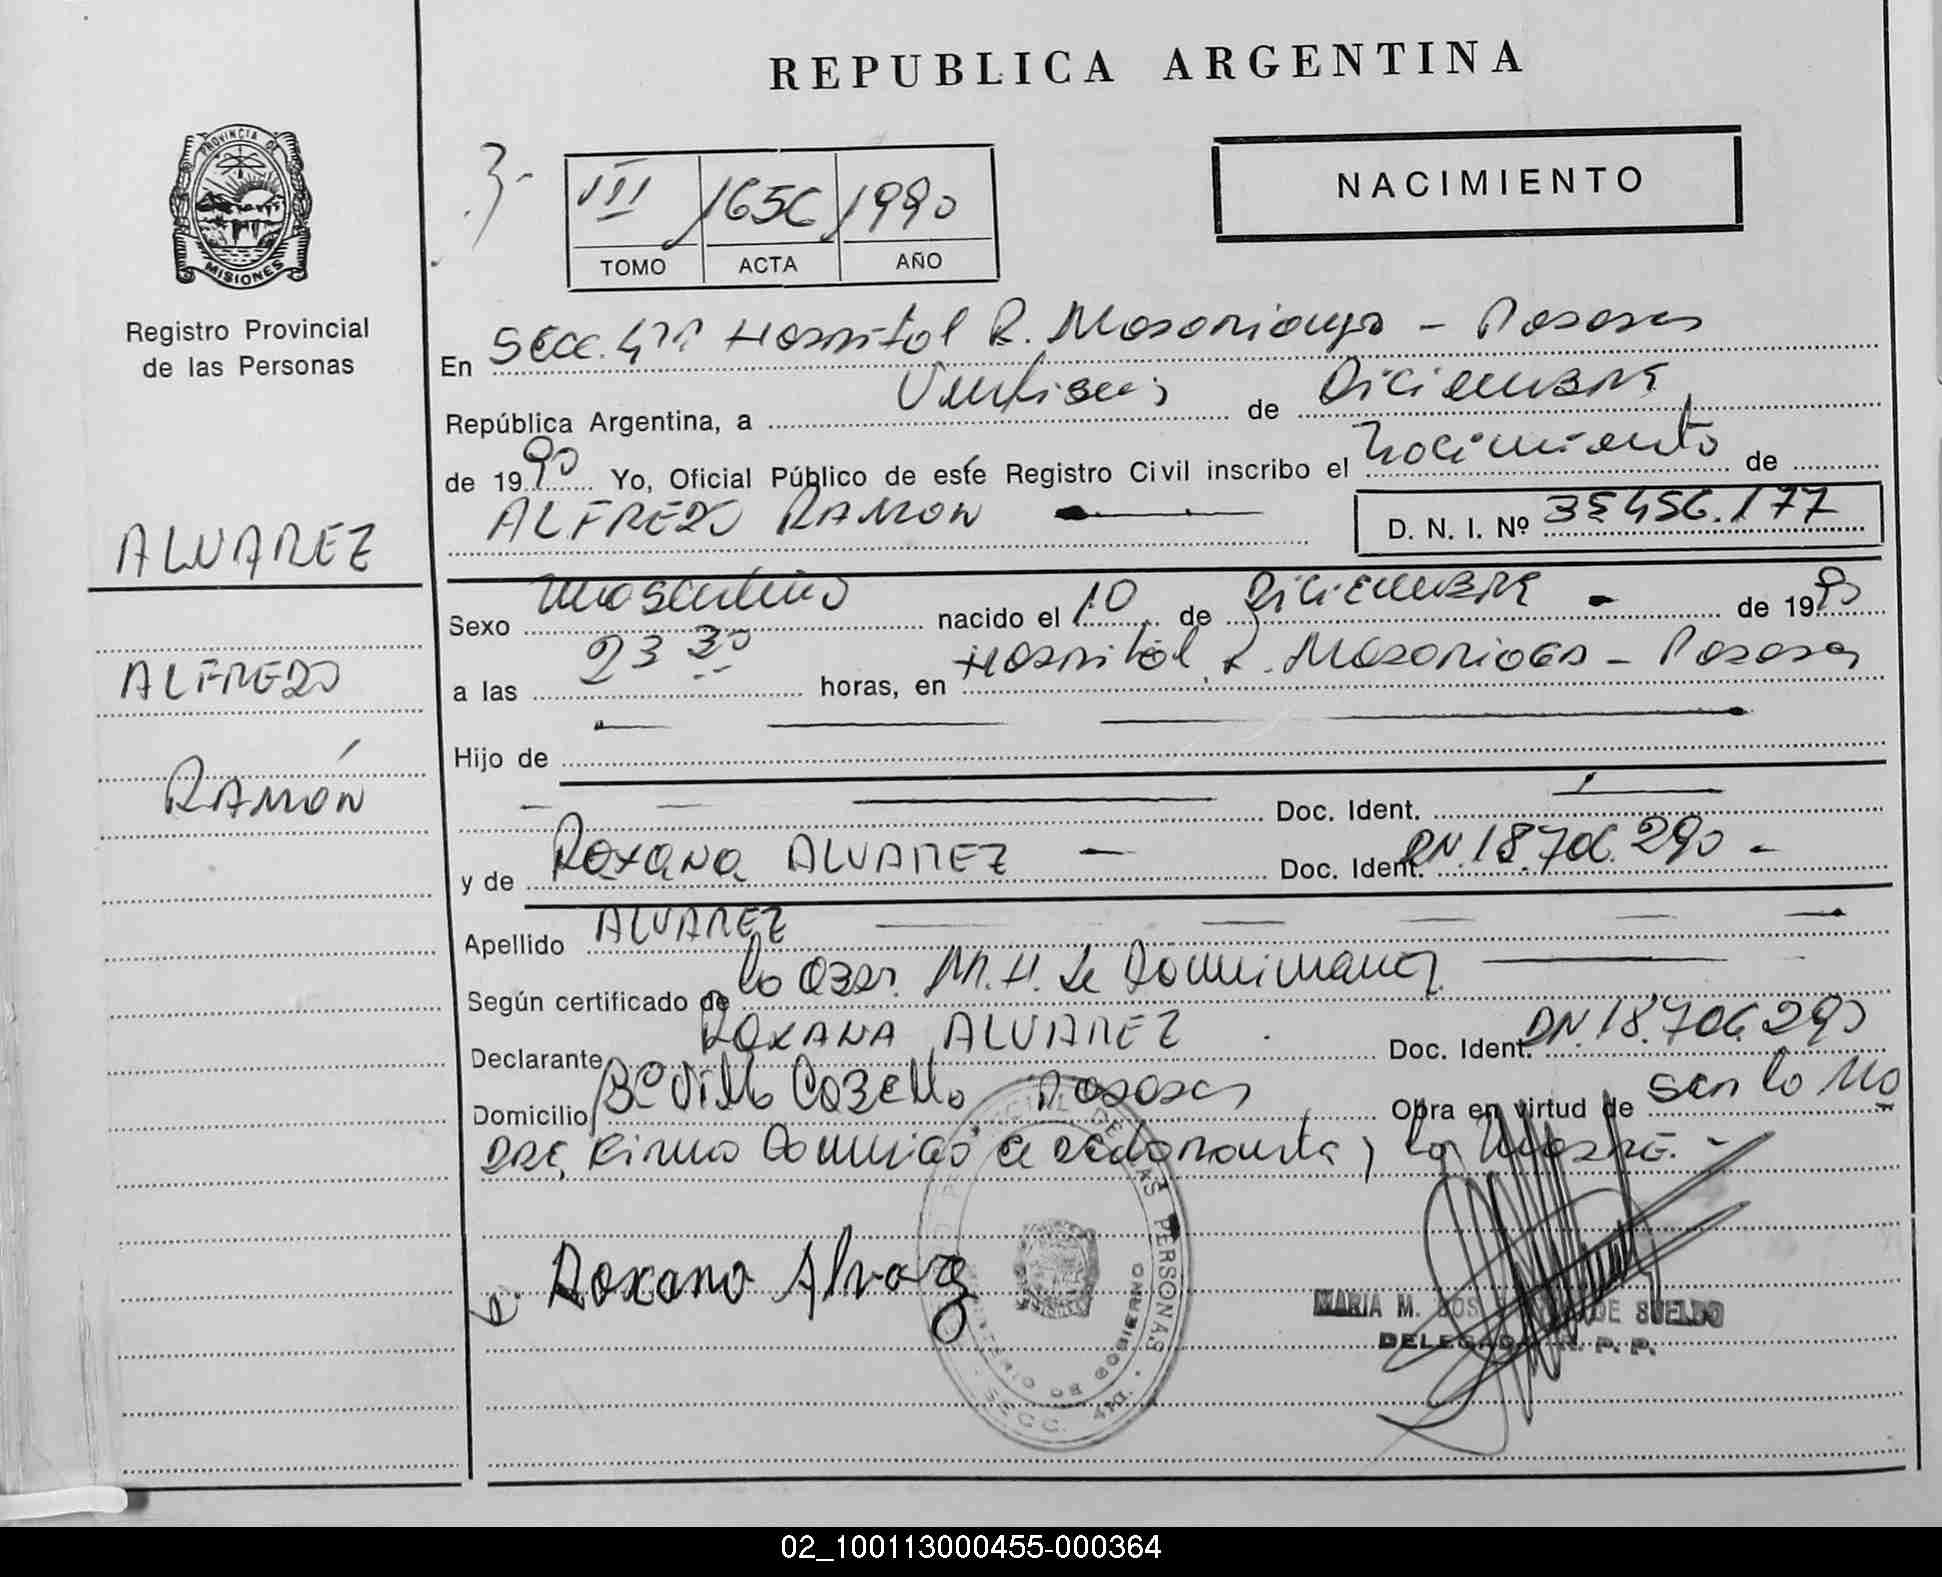 REPUBLICA ARGENTINA
PROVINCIA DE
MISIONES
Registro Provincial
de las Personas
3-
III 1656 1990
TOMO ACTA AÑO
NACIMIENTO
En Secc. 4ta Hospital R. Madariaga - Posadas
República Argentina, a Veintiseis de Diciembre
de 1990 Yo, Oficial Público de este Registro Civil inscribo el Nacimiento de
ALFREDO RAMON D. N. I. Nº 35.456.177
ALVAREZ
ALFREDO
RAMÓN
Sexo masculino nacido el 10 de Diciembre de 1990
a las 23 30 horas, en Hospital R. Madariaga - Posadas
Hijo de
Doc. Ident.
y de Roxana ALVAREZ - Doc. Ident. DN.18.706.290 -
Apellido ALVAREZ
Según certificado de la Obst. M. H. de
Declarante ROXANA ALVAREZ Doc. Ident. DN.18.706.290
Domicilio Bº Villa Posadas Obra en virtud de ser la Ma
dre, Firma conmigo la declarante, la Madre. -
Roxana Alvarez
PROVINCIAL DE LAS PERSONAS
MINISTERIO DE GOBIERNO
SECC. 4ta.
MARIA M. DOS DE SUELDO
DELEGADA R. P. P.
02_100113000455-000364